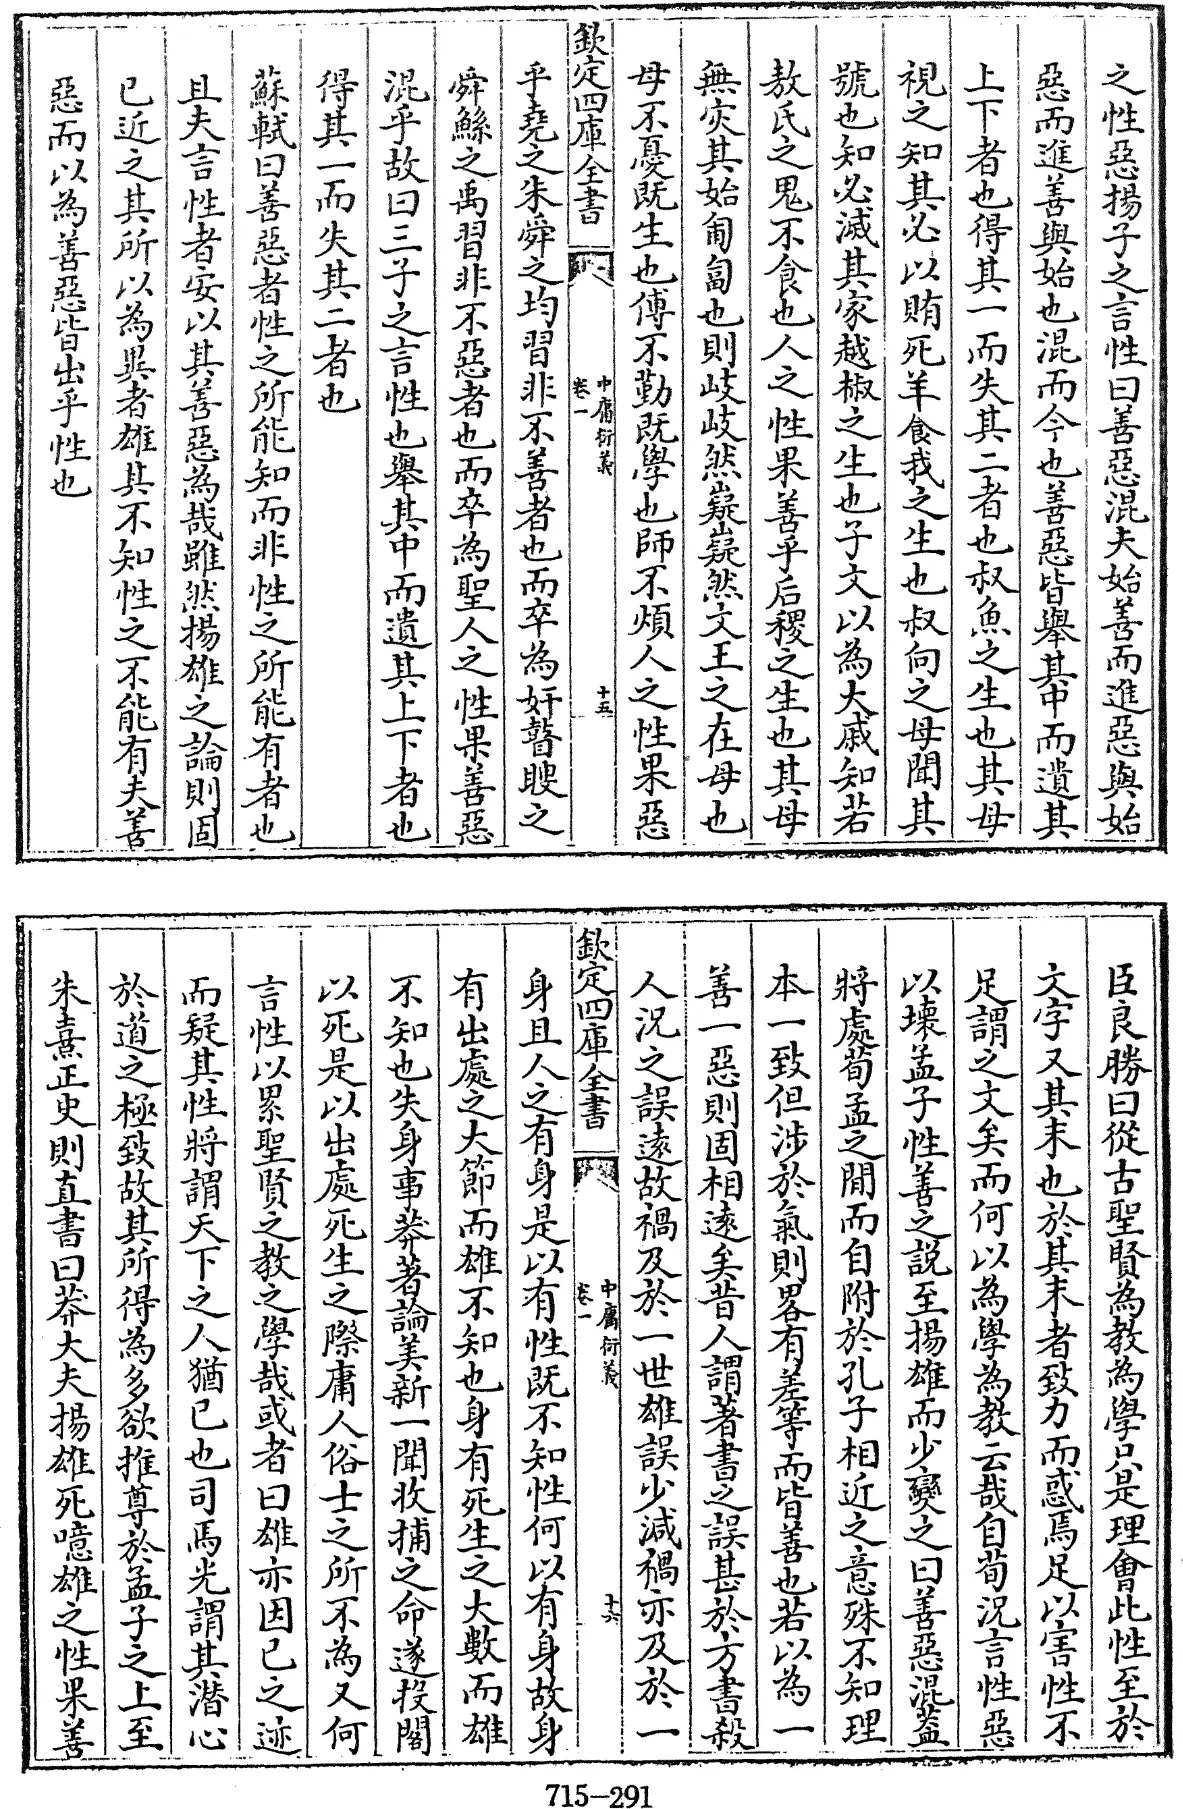 之性惡揚子之言性曰善惡混夫始善而進惡與始
惡而進善與始也混而今也善惡皆舉其中而遺其
上下者也得其一而失其二者也叔魚之生也其母
視之知其必以賄死羊食我之生也叔向之母聞其
號也知必滅其家越椒之生也子文以為大戚知若
敖氏之鬼不食也人之性果善乎后稷之生也其母
無灾其始匍匐也則岐岐然嶷嶷然文王之在母也
母不憂既生也傅不勤既學也師不煩人之性果惡
欽定四庫全書
中庸衍義
卷一
十五
乎堯之朱舜之均習非不善者也而卒為奸瞽瞍之
舜鯀之禹習非不惡者也而卒為聖人之性果善惡
混乎故曰三子之言性也舉其中而遺其上下者也
得其一而失其二者也
蘇軾曰善惡者性之所能知而非性之所能有者也
且夫言性者安以其善惡為哉雖然揚雄之論則固
已近之其所以為異者雄其不知性之不能有夫善
惡而以為善惡皆出乎性也
臣良勝曰從古聖賢為教為學只是理會此性至於
文字又其末也於其末者致力而惑焉足以害性不
足謂之文矣而何以為學為教云哉自荀況言性惡
以壞孟子性善之說至揚雄而少變之曰善惡混蓋
將處荀孟之閒而自附於孔子相近之意殊不知理
本一致但涉於氣則畧有差等而皆善也若以為一
善一惡則固相遠矣昔人謂著書之誤甚於方書殺
人況之誤遠故禍及於一世雄誤少減禍亦及於一
欽定四庫全書
中庸衍義
卷一
十六
身且人之有身是以有性既不知性何以有身故身
有出處之大節而雄不知也身有死生之大數而雄
不知也失身事莽著論美新一聞收捕之命遂投閣
以死是以出處死生之際庸人俗士之所不為又何
言性以累聖賢之教之學哉或者曰雄亦因已之迹
而疑其性將謂天下之人猶已也司馬光謂其潛心
於道之極致故其所得為多欲推尊於孟子之上至
朱熹正史則直書曰莽大夫揚雄死噫雄之性果善
715-291